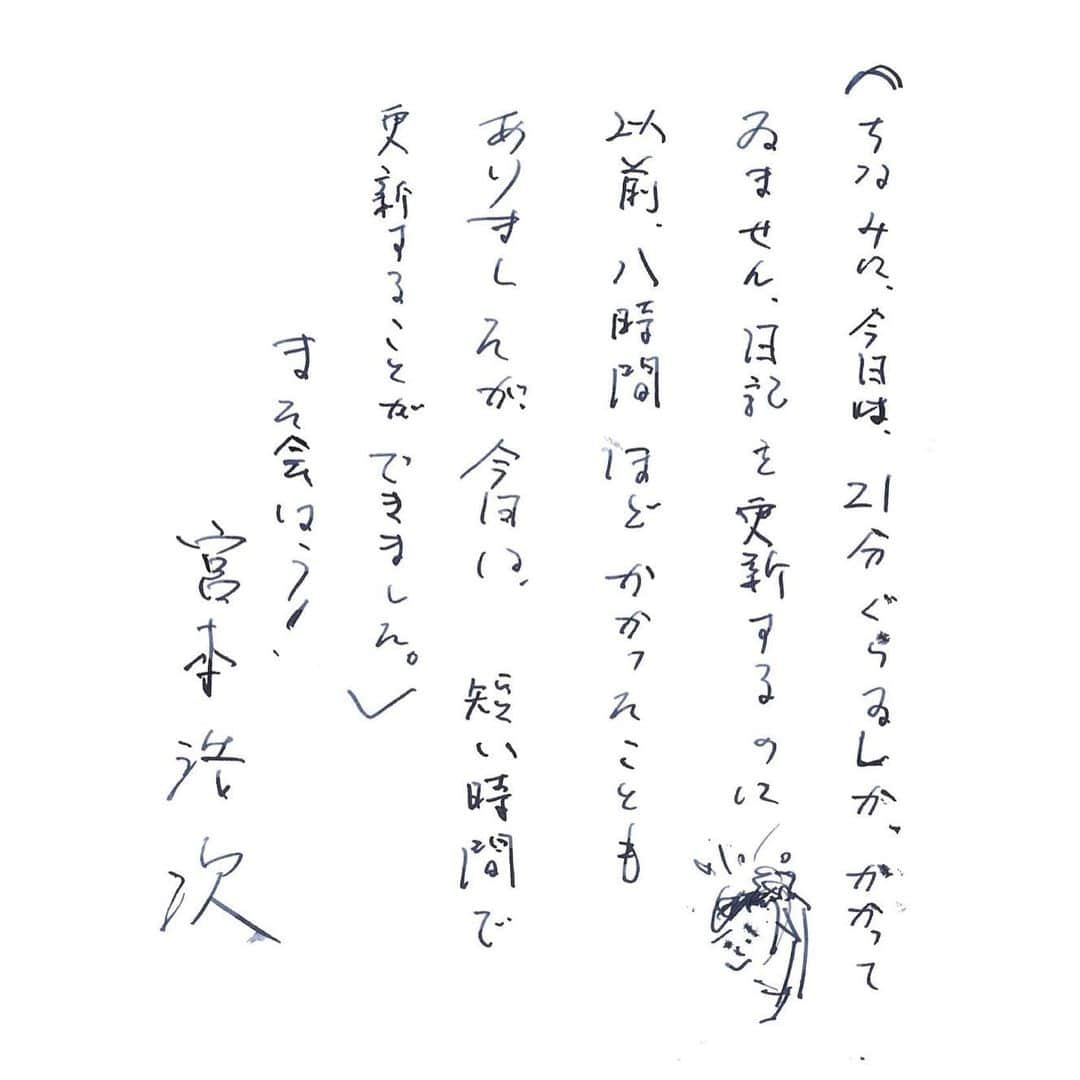 (ちなみに、今日は、21分ぐらゐしか、かかって
ゐません、日記を更新するのに
以前、八時間ほどかかったことも
ありましたが、今日は、短い時間で
更新することができました。)
また会はう!
宮本浩次